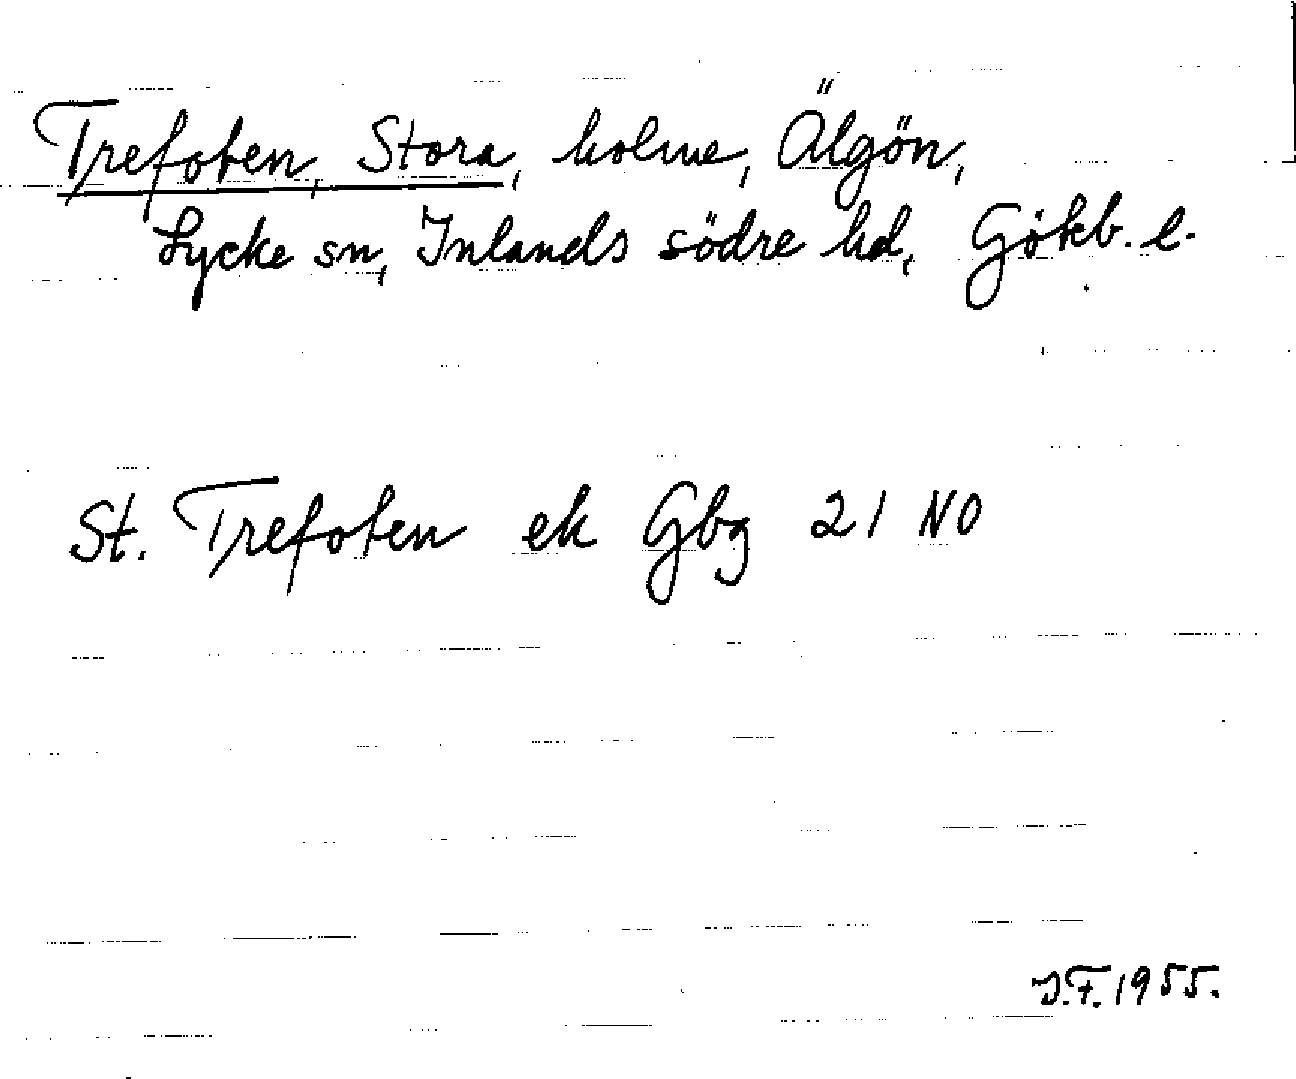 Trefoten, Stora, holme, Älgön,
Lycke sn, Inlands södre hd, Götb. l.
St. Trefoten ek Gbg 21 NO
J.F. 1955.